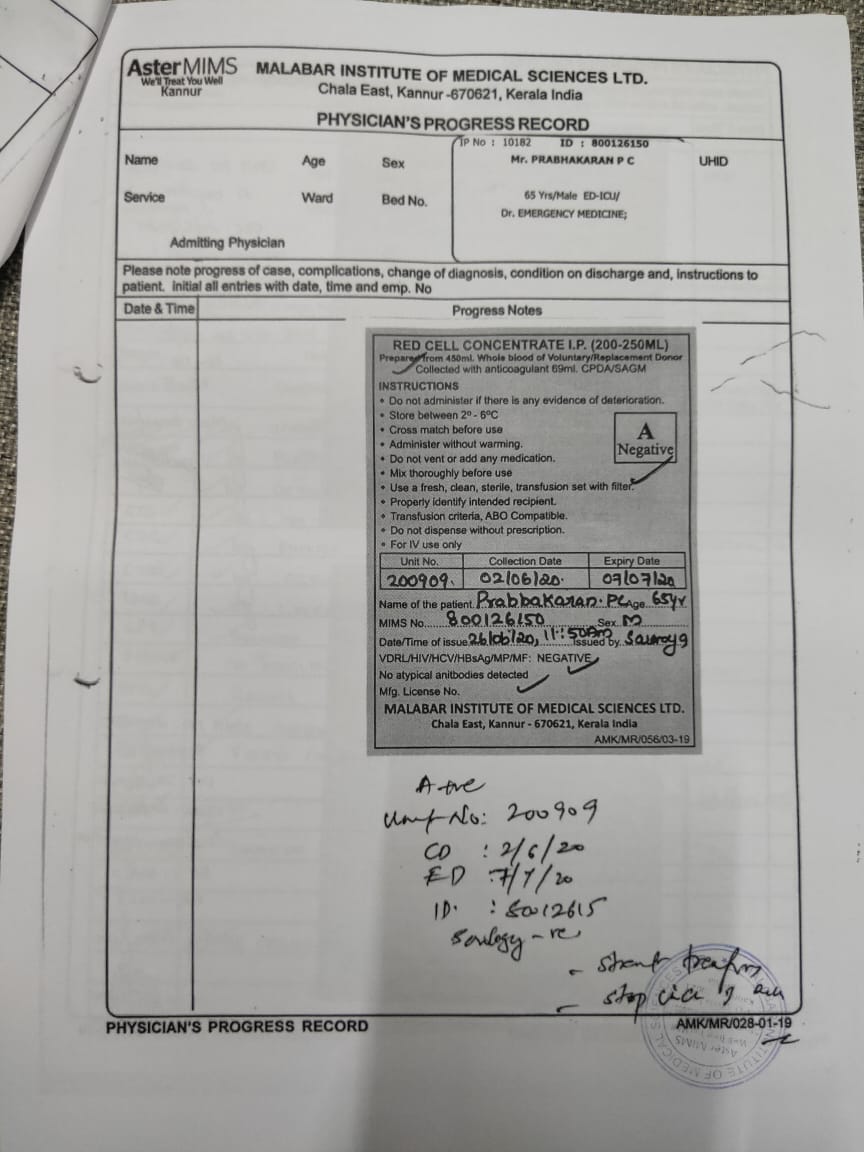 AsterMIMS
We'll Treat You Well
Kannur
MALABAR INSTITUTE OF MEDICAL SCIENCES LTD.
Chala East, Kannur -670621, Kerala India
PHYSICIAN'S PROGRESS RECORD
IP No : 10182 ID : 800126150
Name Age Sex Mr. PRABHAKARAN P C UHID
Service Ward Bed No. 65 Yrs/Male ED-ICU/
Dr. EMERGENCY MEDICINE;
Admitting Physician
Please note progress of case, complications, change of diagnosis, condition on discharge and, instructions to
patient. Initial all entries with date, time and emp. No
Date & Time Progress Notes
RED CELL CONCENTRATE I.P. (200-250ML)
Prepared from 450ml. Whole blood of Voluntary/Replacement Donor
Collected with anticoagulant 69ml. CPDA/SAGM
INSTRUCTIONS
• Do not administer if there is any evidence of deterioration.
• Store between 2º - 6ºC
• Cross match before use
• Administer without warming.
• Do not vent or add any medication.
• Mix thoroughly before use
• Use a fresh, clean, sterile, transfusion set with filter.
• Properly identify intended recipient.
• Transfusion criteria, ABO Compatible.
• Do not dispense without prescription.
• For IV use only
A
Negative
Unit No. Collection Date Expiry Date
200909. 02/06/20. 07/07/20
Name of the patient Prabhakaran. PC Age 65yr
MIMS No. 800126150 Sex M
Date/Time of issue 26/06/20, 11:50Am Issued by.
VDRL/HIV/HCV/HBsAg/MP/MF: NEGATIVE
No atypical anitbodies detected
Mfg. License No.
MALABAR INSTITUTE OF MEDICAL SCIENCES LTD.
Chala East, Kannur - 670621, Kerala India
AMK/MR/056/03-19
Unit No: 200909
CD : 2/6/20
ED : 7/7/20
ID. : 80012615
- stop
PHYSICIAN'S PROGRESS RECORD
AMK/MR/028-01-19